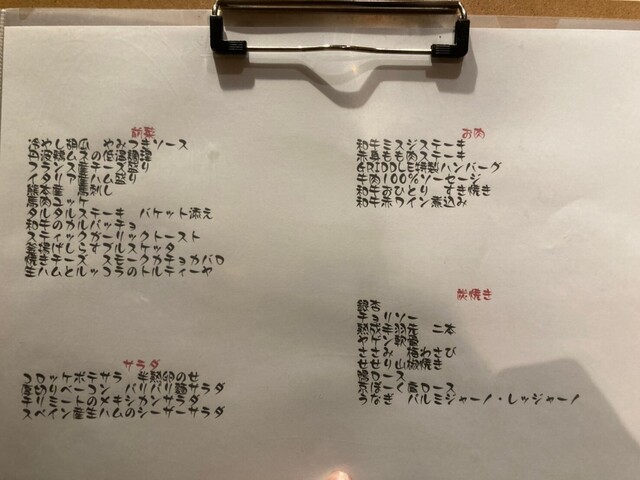 前菜
冷やし胡瓜 やみつきソース
丹波鶏ムネの低温燻製
フランス産チーズ盛り
イタリア産ハム盛り
熊本産 馬刺し
馬肉ユッケ
タルタルステーキ バケット添え
和牛のカルパッチョ
スティックガーリックトースト
釜揚げしらすブルスケッタ
焼きチーズ スモークカチョカバロ
生ハムとルッコラのトルティーヤ
サラダ
コロッケポテサラ 半熟卵のせ
厚切りベーコン バリバリ麺サラダ
チリミートのメキシカンサラダ
スペイン産生ハムのシーザーサラダ
お肉
和牛ミスジステーキ
赤身もも肉ステーキ
GRIDDLE特製ハンバーグ
牛肉100%ソーセージ
和牛おひとり すき焼き
和牛赤ワイン煮込み
炭焼き
銀杏
チョリソー
熟成手羽先 二本
ヤゲン軟骨
ささみ 梅わさび
せせり山椒焼き
鴨ロース
京ぽーく肩ロース
うなぎ パルミジャーノ・レッジャーノ